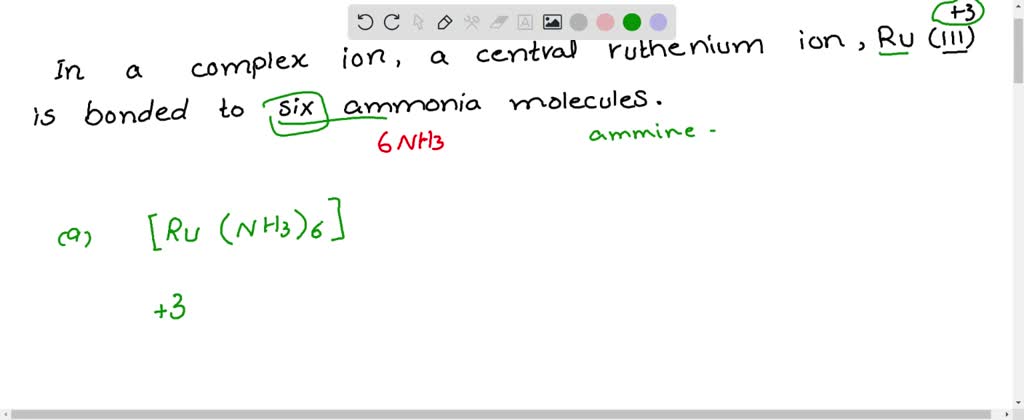 +3
In a complex ion, a central ruthenium ion, Ru (III)
is bonded to six ammonia molecules.
6NH3 ammine -
(a) [Ru (NH3)6]
+3